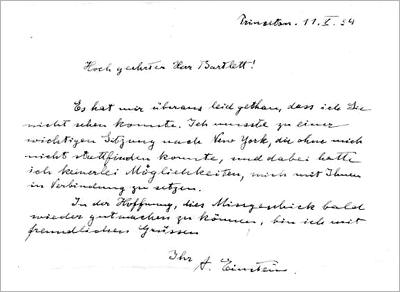 Princeton. 11. X. 34
Hochgeehrter Herr Bartlett!
Es hat mir überaus leid gethan, dass ich Sie
nicht sehen konnte. Ich musste zu einer
wichtigen Sitzung nach New York, die ohne mich
nicht stattfinden konnte, und dabei hatte
ich keinerlei Möglichkeiten, mich mit Ihnen
in Verbindung zu setzen.
In der Hoffnung, dies Missgeschick bald
wieder gutmachen zu können, bin ich mit
freundlichen Grüssen
Ihr
A. Einstein.